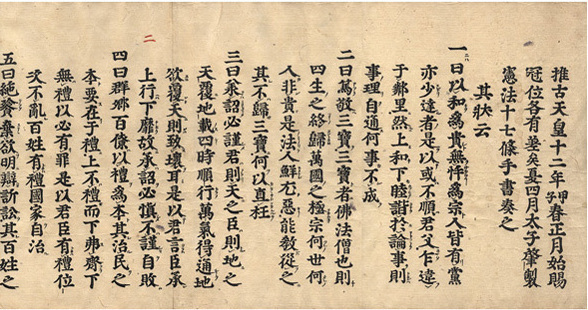 推古天皇十二年甲子春正月始賜
冠位各有差矣夏四月太子肇製
憲法十七條手書奏之
其狀云
一曰以和爲貴無忤爲宗人皆有黨
亦少達者是以或不順君父乍違
于鄰里然上和下睦諧於論事則
事理自通何事不成
二曰篤敬三寶三寶者佛法僧也則
四生之終歸萬國之極宗何世何
人非貴是法人鮮尤惡能敎從之
其不歸三寶何以直枉
三曰承詔必謹君則天之臣則地之
天覆地載四時順行萬氣得通地
欲覆天則致壞耳是以君言臣承
上行下靡故承詔必愼不謹自敗
二
四曰群卿百僚以禮爲本其治民之
本要在乎禮上不禮而下弗齊下
無禮以必有罪是以君臣有禮位
次不亂百姓有禮國家自治
五曰絶餮棄欲明辯訴訟其百姓之